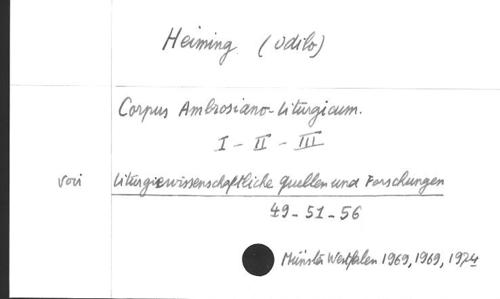 Heiming (Odilo)
Corpus Ambrosiano-Liturgicum.
I - II - III
voir Liturgiewissenschaftliche Quellen und Forschungen
49 - 51 - 56
Münster Westfalen 1969, 1969, 1974